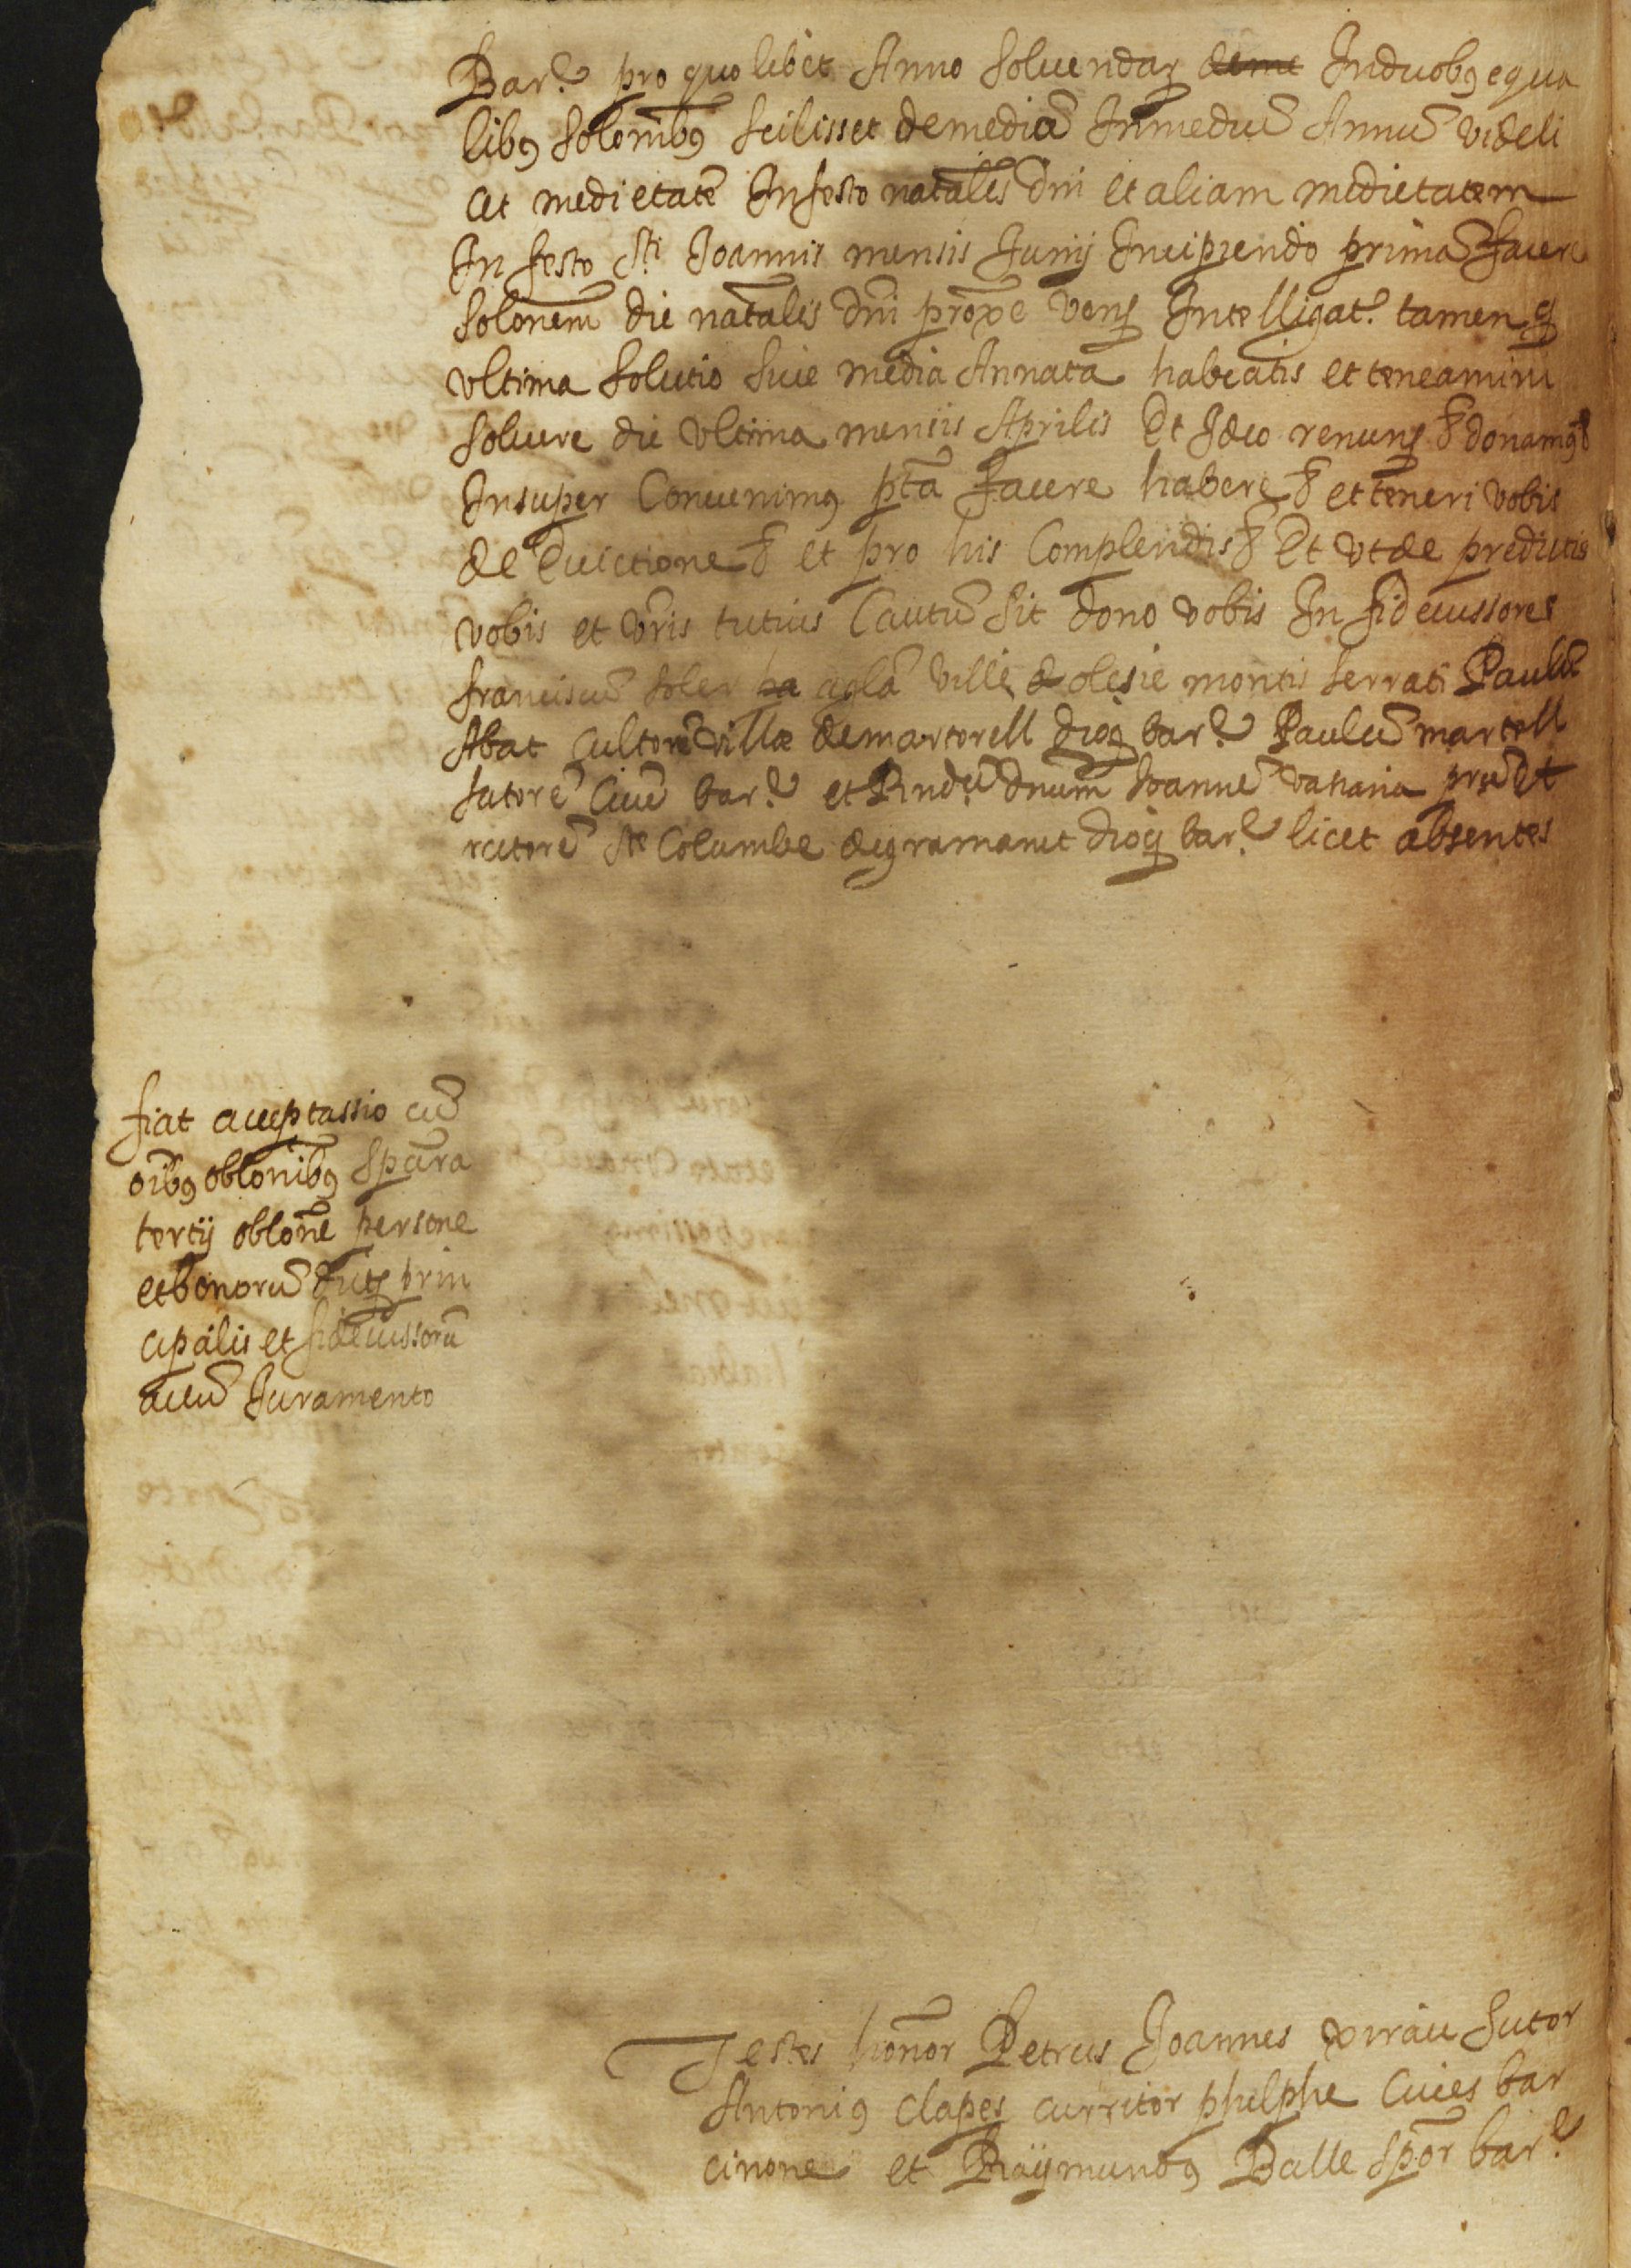 Bar.ᵉ pro quolibet Anno soluendaꝝ deme Induobꝯ equa
libꝯ solonibꝯ scilisset demediã Inmediũ Annũ videli
cet medietatẽ Infesto natalis dni et aliam medietatem
In festo Sti Joannis mensis Junij Incipiendo primã facere
solonem die natalis dni proxe venꝭ Intelligat. tamen ꝙ
vltima solutio siue media Annata habeatis et teneamini
soluere die vltima mensis Aprilis Et Ideo renunꝭ & donamꝯ &
Insuper Conuenimꝯ pta facere habere & et teneri vobis
de Euictione & et pro his Complendis & Et vt de predictis
vobis et vris tutius Cautũ sit dono vobis In fideiussores
franciscũ soler pa aglã ville de olesie montis serrati Paulũ
Abat cultorẽ villæ demartorell dioꝭ bar.ᵉ Paulũ martell
sutorẽ Ciuẽ bar.ᵉ et Rndũ dnum Joannẽ prũ Et
rectorẽ Ste Columbe degramanet dioꝭ bar.ᵉ licet absentes
fiat acceptassio cũ
oibꝯ oblonibꝯ
tertij oblone persone
et bonorũ prin
cipalis et fideiussorũ
accũ Juramento
Testes honor Petrus Joannes xirau sutor
Antoniꝯ clapes curritor phelphe Ciues bar
cinone et Raÿmundꝯ Batlle spor bar.ᵉ